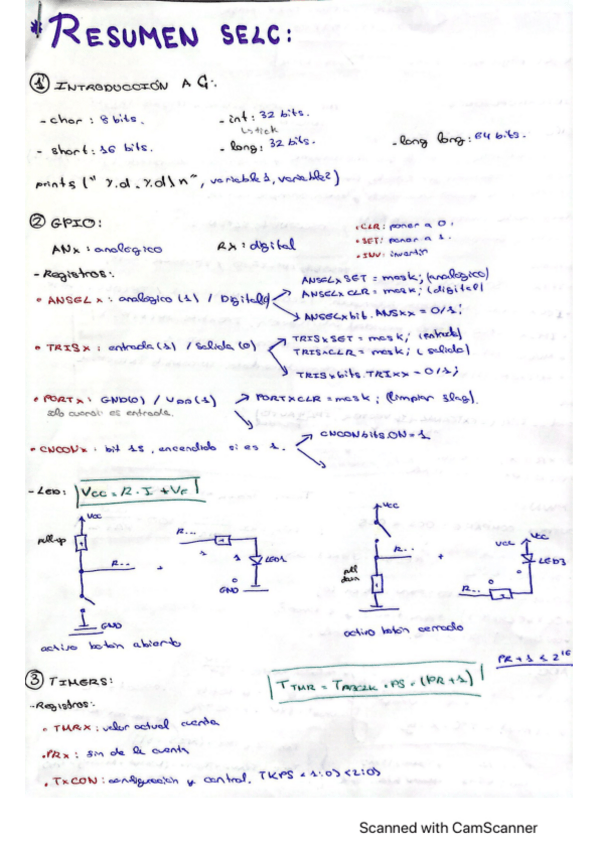 * RESUMEN SELC:
① INTRODUCCIÓN A C:
- char: 8 bits.
- int: 32 bits.
- short: 16 bits.
- long: 32 bits.
- long long: 64 bits.
printf ("%d. %d\n", variable1, variable2)
② GPIO:
ANx: analógico
Rx: digital
• CLR: poner a 0.
• SET: poner a 1.
• INV: invertir
- Registros:
• ANSELx: analogico (1) / Digital
ANSELxSET = mask; (analogico)
ANSELxCLR = mask; (digital)
ANSELxbit.ANSxx = 0/1;
• TRISx: entrada (1) / salida (0)
TRISxSET = mask; (entrada)
TRISxCLR = mask; (salida)
TRISxbits.TRIxx = 0/1;
• PORTx: GND(0) / VDD(1)
es entrada.
PORTxCLR = mask; (limpiar flag).
• CNCONx: bit 15, encendido si es 1.
CNCONbits.ON = 1.
- LED: Vcc = R · I + VF
Vcc
pull-up
R...
GND
activo botón abierto
+
R...
1
1
LED1
0
GND
Vcc
R...
pull down
activo botón cerrado
+
Vcc
Vcc
LED3
0
0
R...
③ TIMERS:
T TMR = TPBCLK · PS · (PR + 1)
PR + 1 ≤ 2^16
- Registros:
• TMRX: valor actual cuenta
• PRx: fin de la cuenta
• TxCON: configuración y control, TKPS <1:0> <2:0>
Scanned with CamScanner